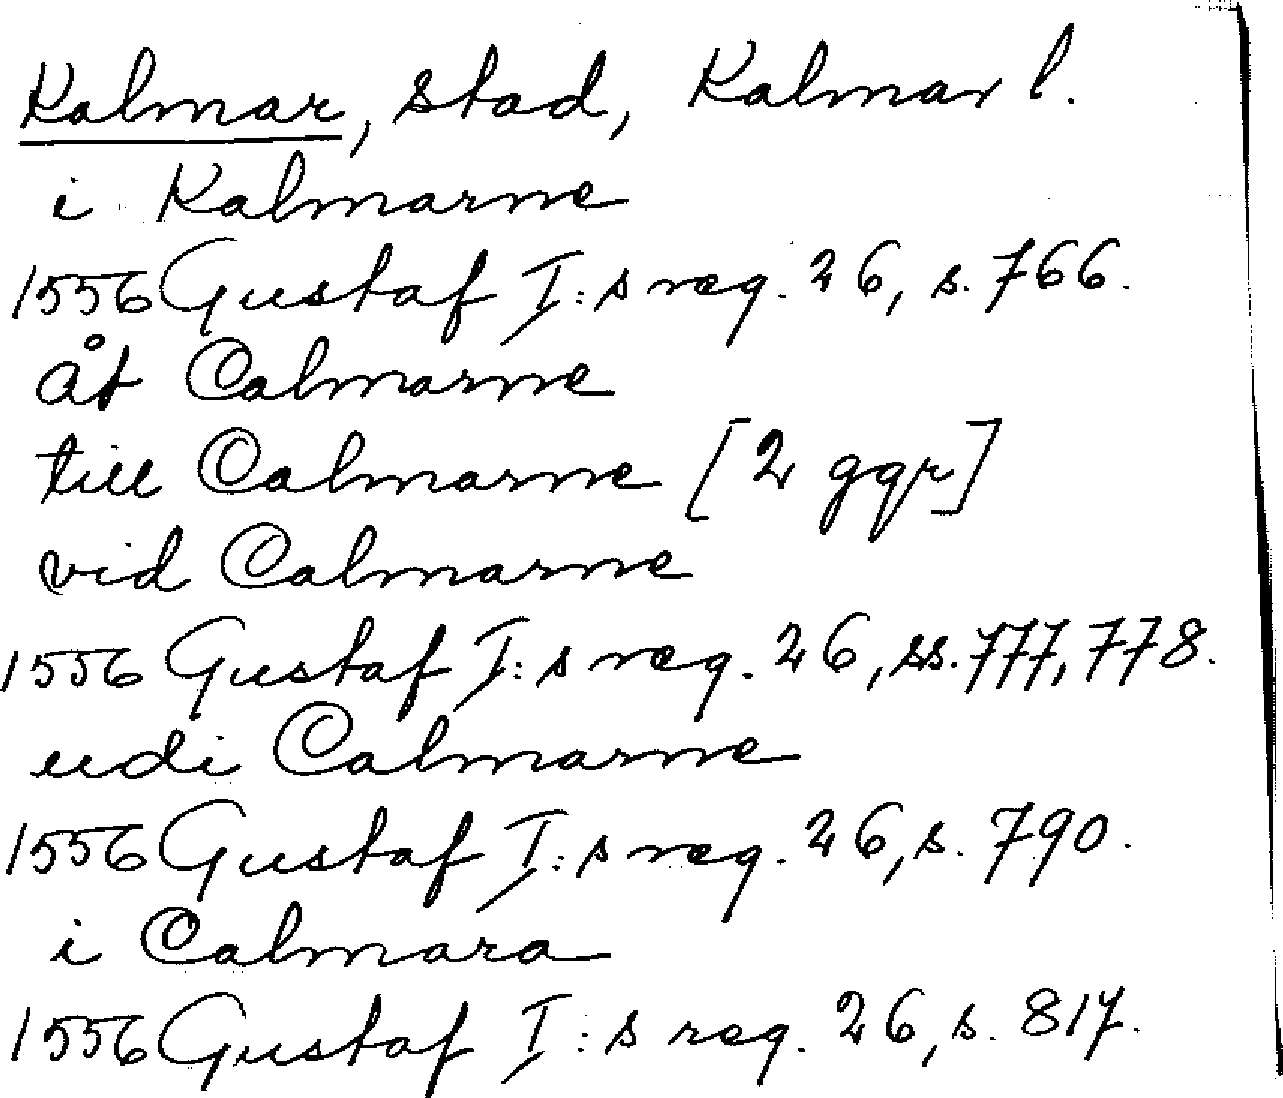 Kalmar, stad, Kalmar l.
i Kalmarne
1556 Gustaf I:s reg. 26, s. 766.
åt Calmarne
till Calmarne [2 ggr]
vid Calmarne
1556 Gustaf I:s reg. 26, ss. 777, 778.
udi Calmarne
1556 Gustaf I:s reg. 26, s. 790.
i Calmara
1556 Gustaf I:s reg. 26, s. 817.